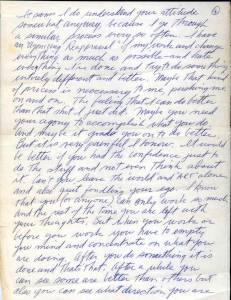 seems I do understand your attitude
somewhat anyway, because I go through
a similar process every so often. I have
an agonizing Reapprasal of my work and change
everything as much as possible = and hate
everything I've done and try to do something
entirely different and better. Maybe that kind
of process is necessary to me, pushing me
on and on. The feeling that I can do better
than that shit I just did. Maybe you need
your agony to accomplish what you do.
and maybe it goads you on to do better.
But it is very painful I know. It would
be better if you had the confidence just to
do the stuff and not even think about
it. Can't you leave the "world" and "ART" alone
and also quit fondling your ego. I know
that you (or anyone) can only work so much
and the rest of the time you are left with
your thoughts. But when you work or
before your work you have to empty
you mind and concentrate on what you
are doing. After you do something it is
done and that's that. After a while you
can see some are better than others but
also you can see what direction you are